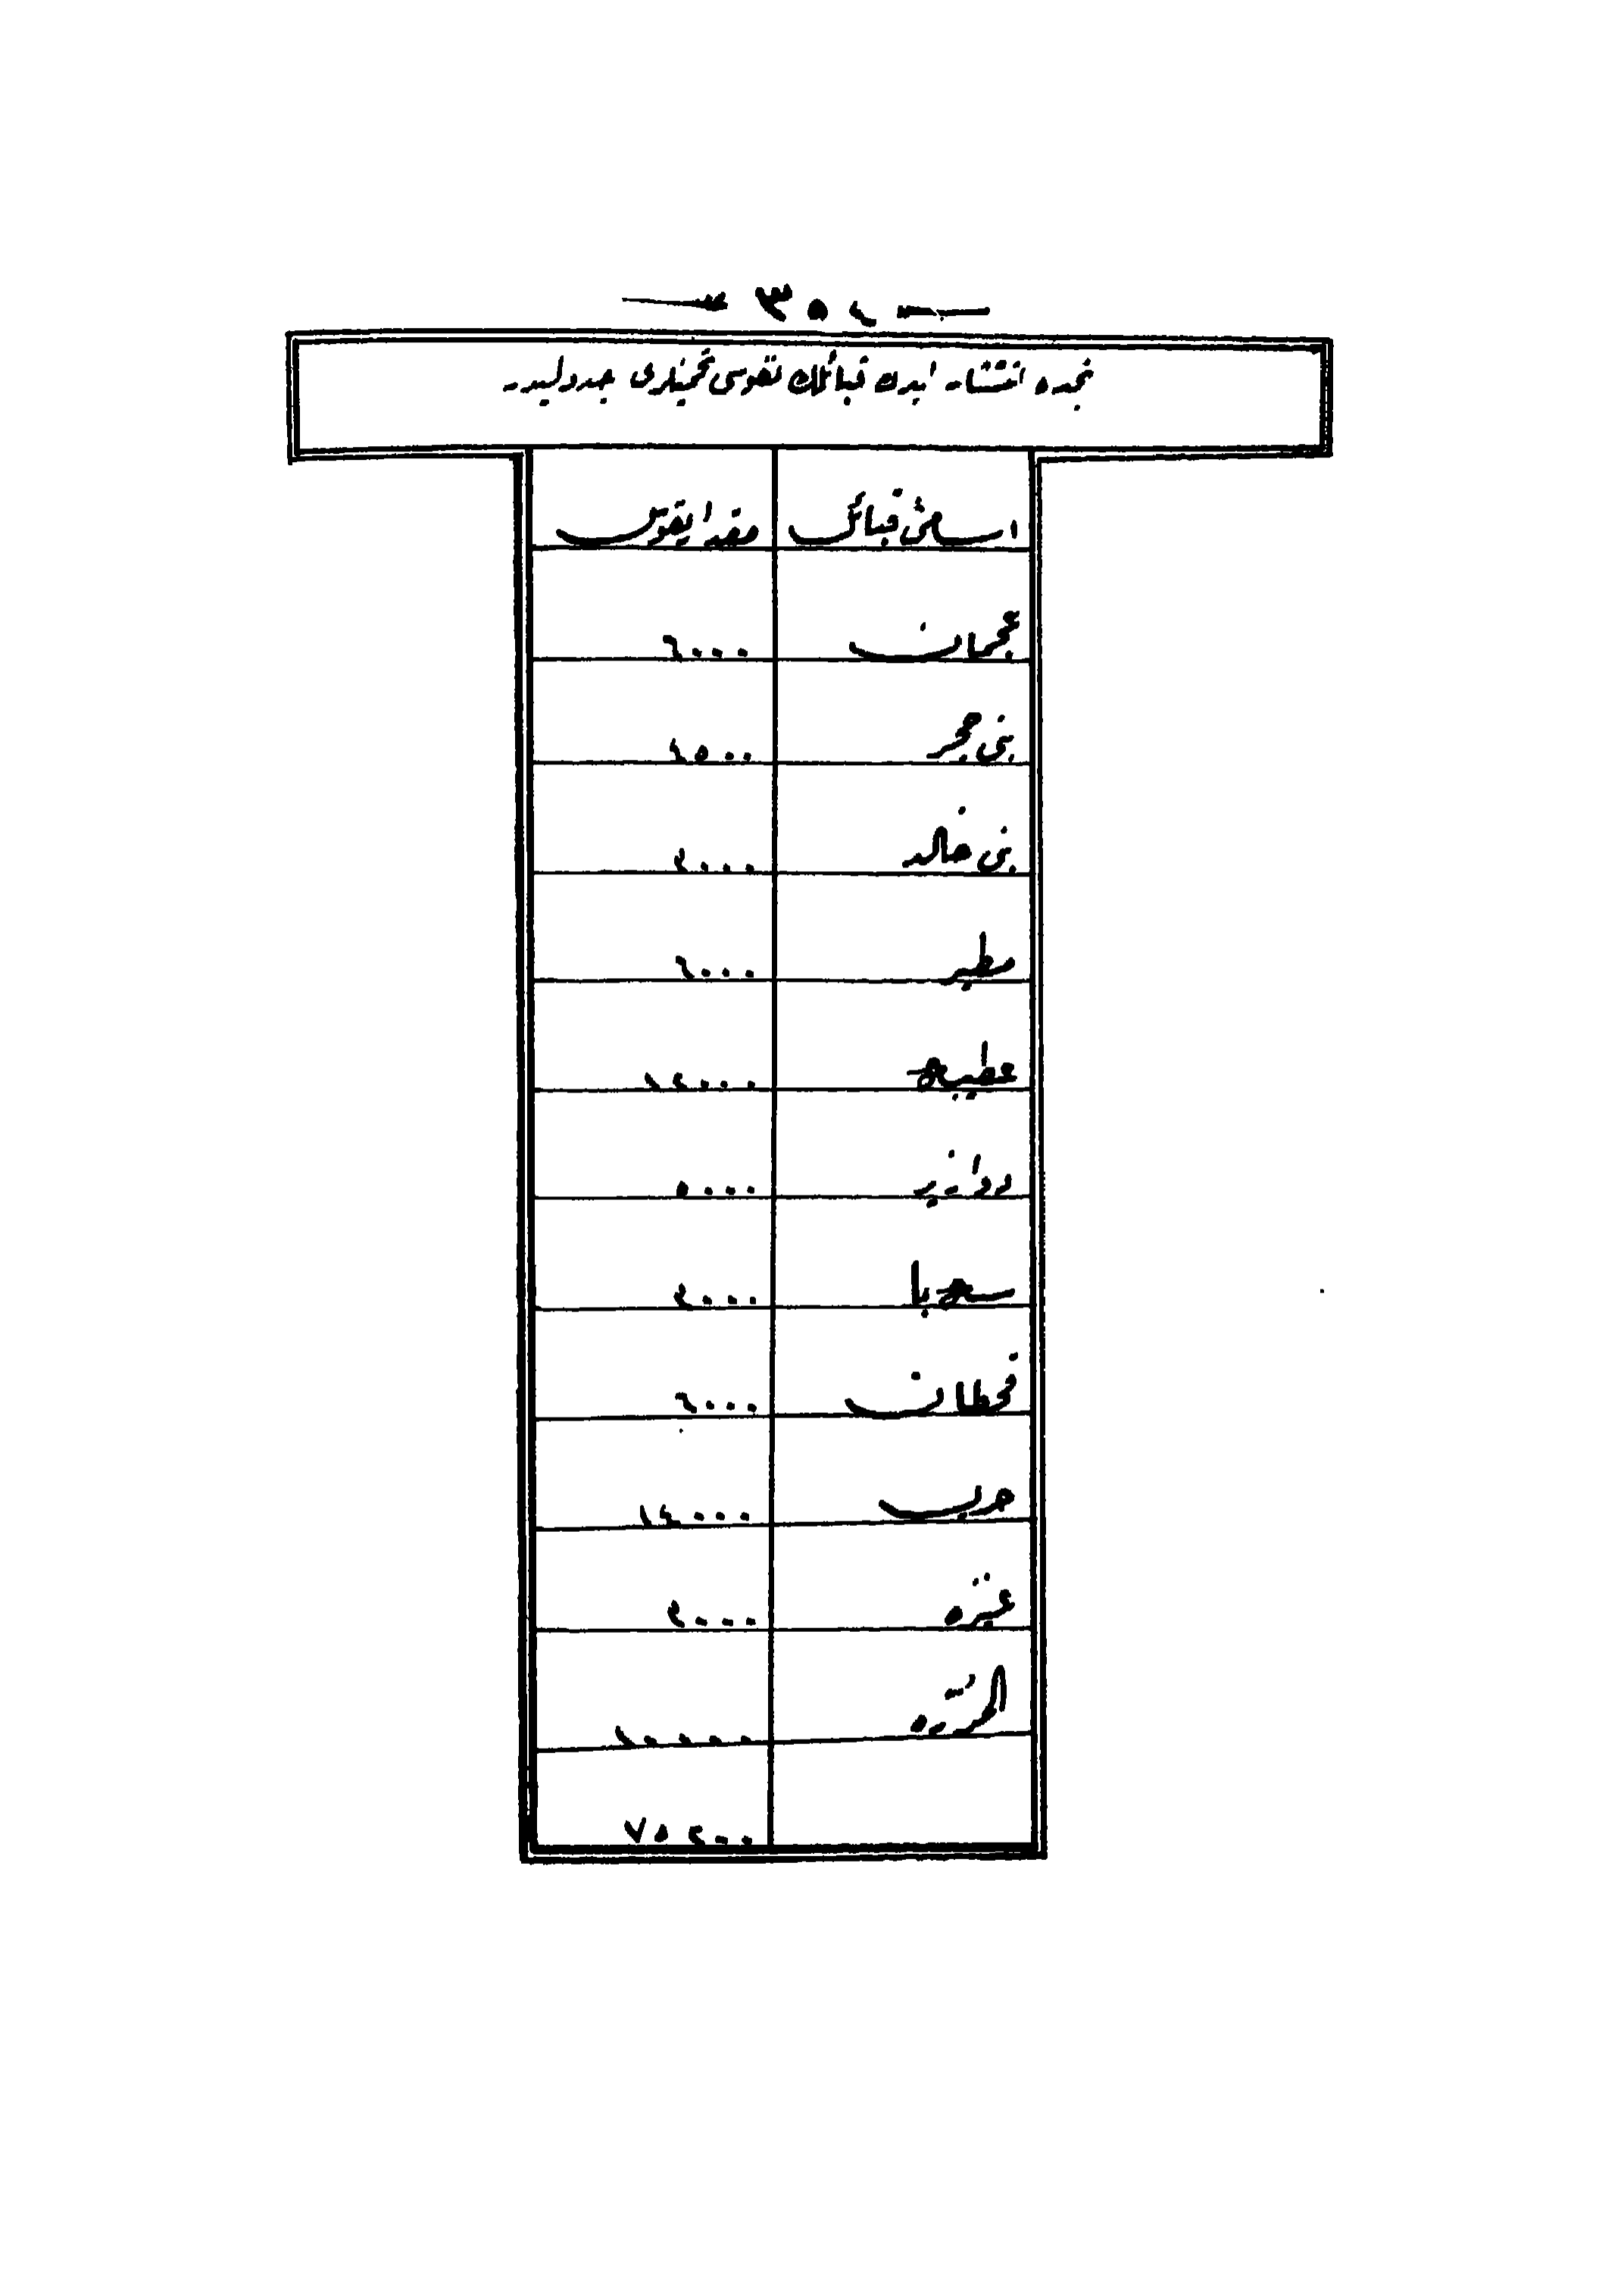 — ٣٥٤ —
نجده انتشار ايدن قبائلك نفوسى تخمينلرى جدوليدر
اسامئ قبائل مقدار نفوس
عجمان ٦٠٠٠
بنى حجر ٤٥٠٠
بنى خالد ٢٠٠٠
مطير ٦٠٠٠
عطيبه ١٢٠٠٠
٥٠٠٠
سهبا ٢٠٠٠
قحطان ٦٠٠٠
حرب ١٤٠٠٠
عنيزه ٢٠٠٠
المره ١٠٠٠٠
٧٥٢٠٠